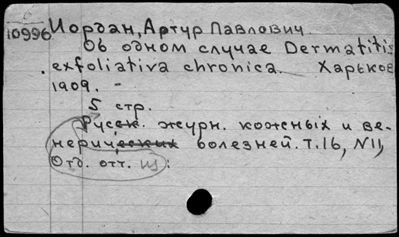 10996 Иордан, Артур Павлович.
Об одном случае Dermatitis
exfoliativa chronica. Харьков
1909. -
5 стр.
Русск. журн. кожных и ве-
нерических болезней. Т.16, N11,
Отд. отт. из: